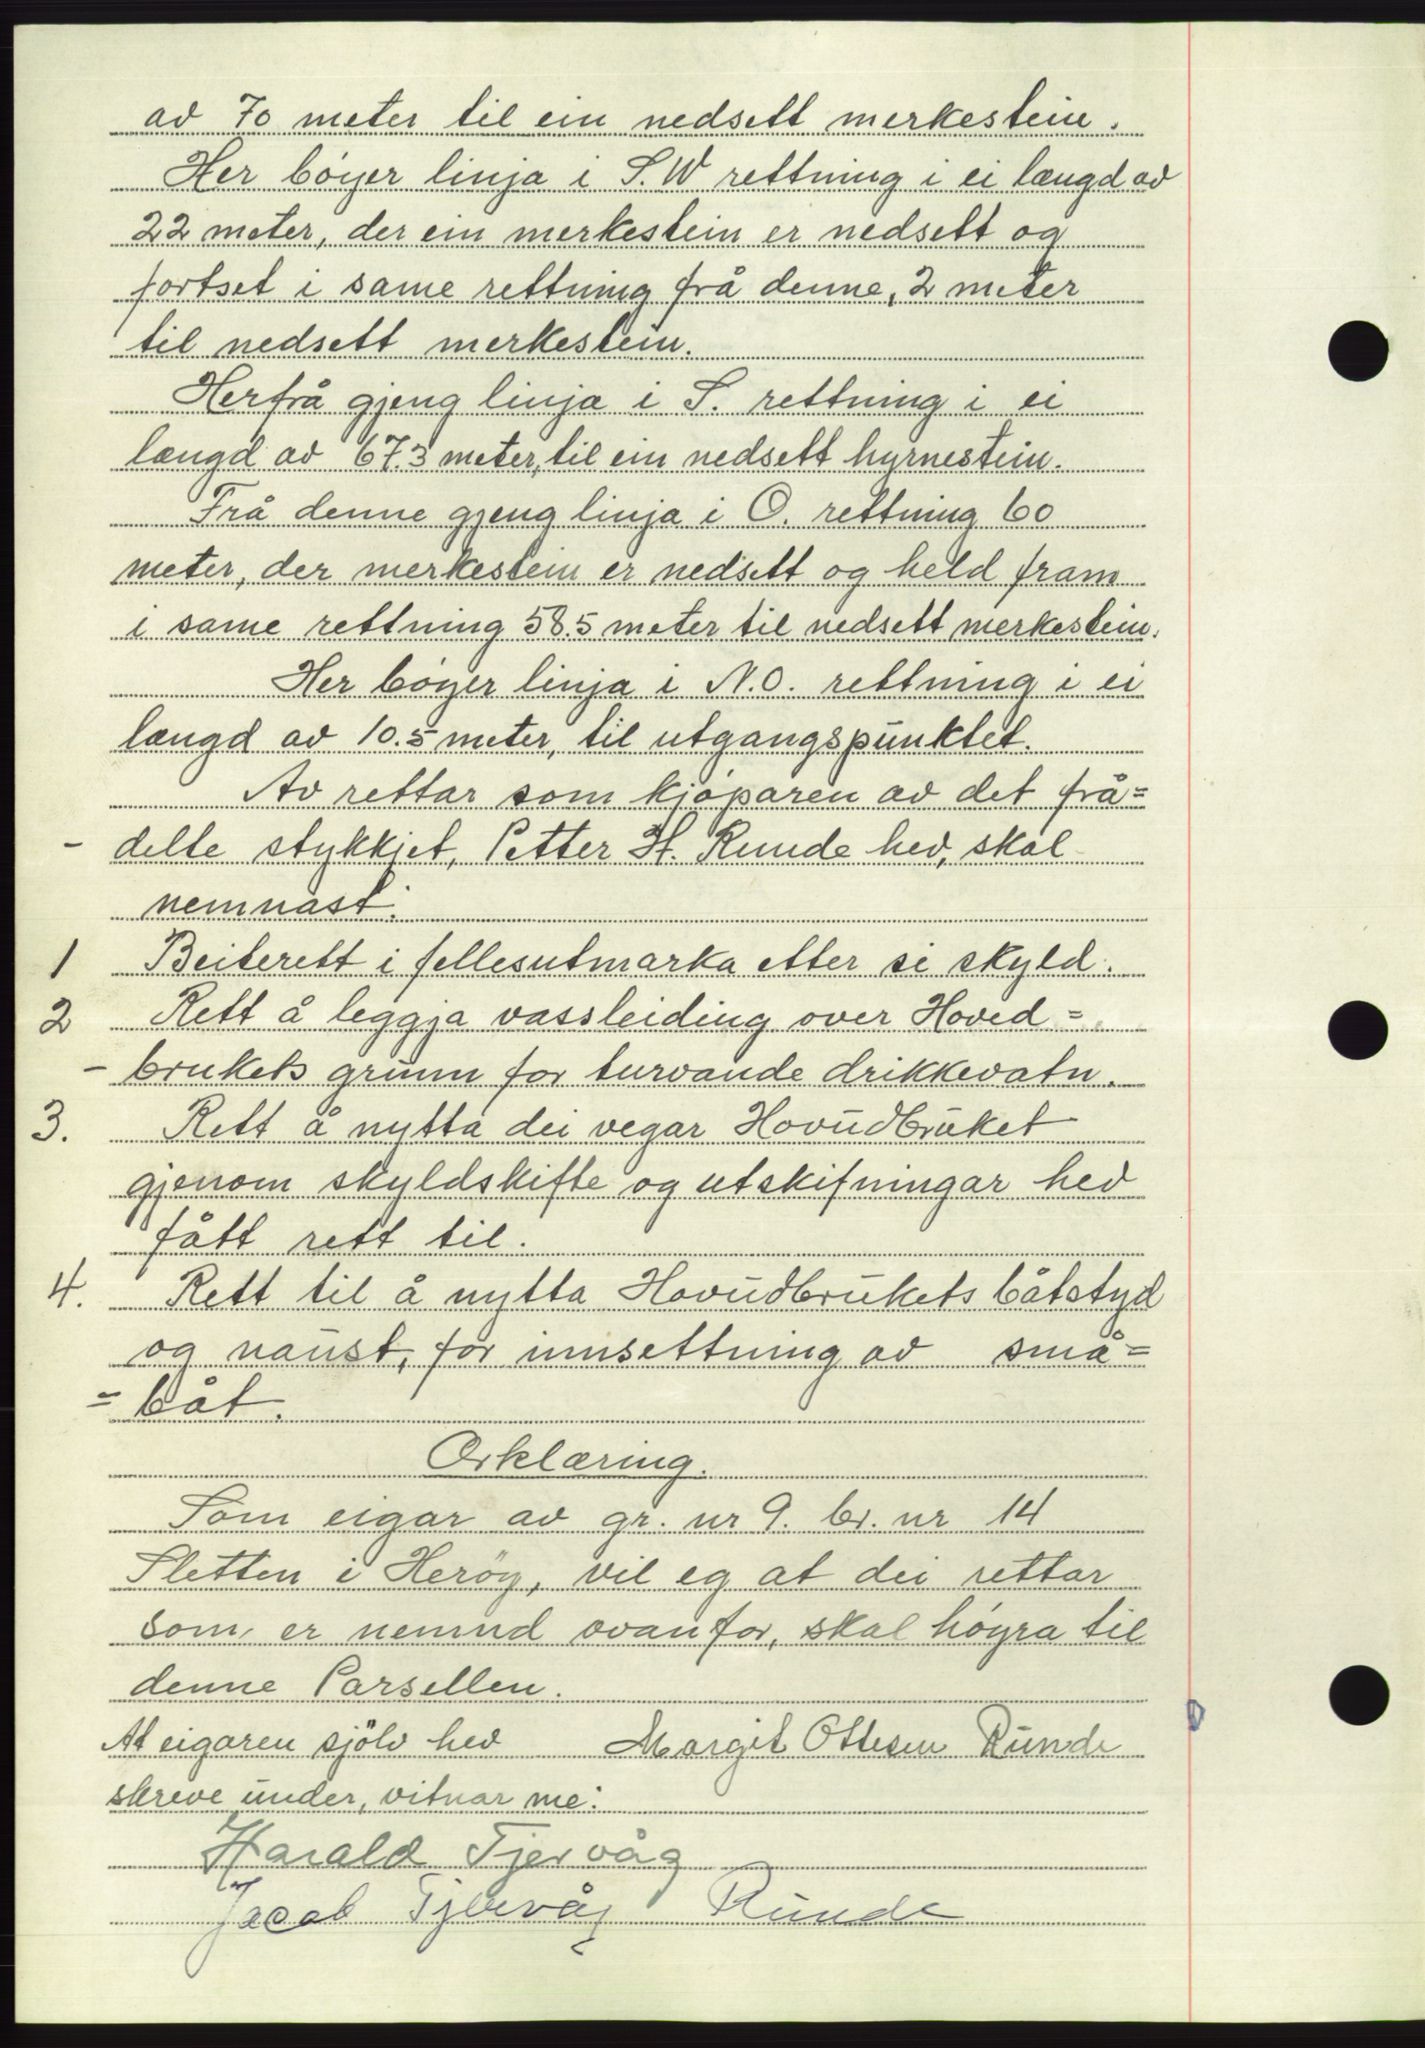 av 70 meter til ein nedsett merkestein.
Her bóyer linja i S.W rettning i ei længd av
22 meter, der ein merkestein er nedsett og
fortset i same rettning frå denne, 2 meter
til nedsett merkestein.
Herfrå gjeng linja i S. rettning i ei
længd av 67.3 meter, til ein nedsett hyrnestein.
Frå denne gjeng linja i O. rettning 60
meter, der merkestein er nedsett og held fram
i same rettning 58.5 meter til nedsett merkestein.
Her bóyer linja i N.O. rettning i ei
længd av 10.5 meter, til utgangspunktet.
Av rettar som kjóparen av det frå=
- delte stykkjet, Petter H. Runde hev, skal
nemnast:
1 Beiterett i fellesutmarka etter si skyld.
2 Rett å leggja vassleiding over Hoved=
- brukets grunn for turvande drikkevatn.
3. Rett å nytta dei vegar Hovudbruket
gjenom skyldskifte og utskifningar hev
fått rett til.
4. Rett til å nytta Hovudbrukets båtstyd
og naust, for innsettning av små=
= båt.
Erklæring.
Som eigar av gr. nr 9. br. nr 14
Sletten i Heröy, vil eg at dei rettar
som er nemnd ovanfor, skal hóyra til
denne Parsellen.
At eigaren sjölv hev Margit Ottesen Runde
skreve under, vitnar me:
Harald Tjervåg
Jacob Tjervåg Runde